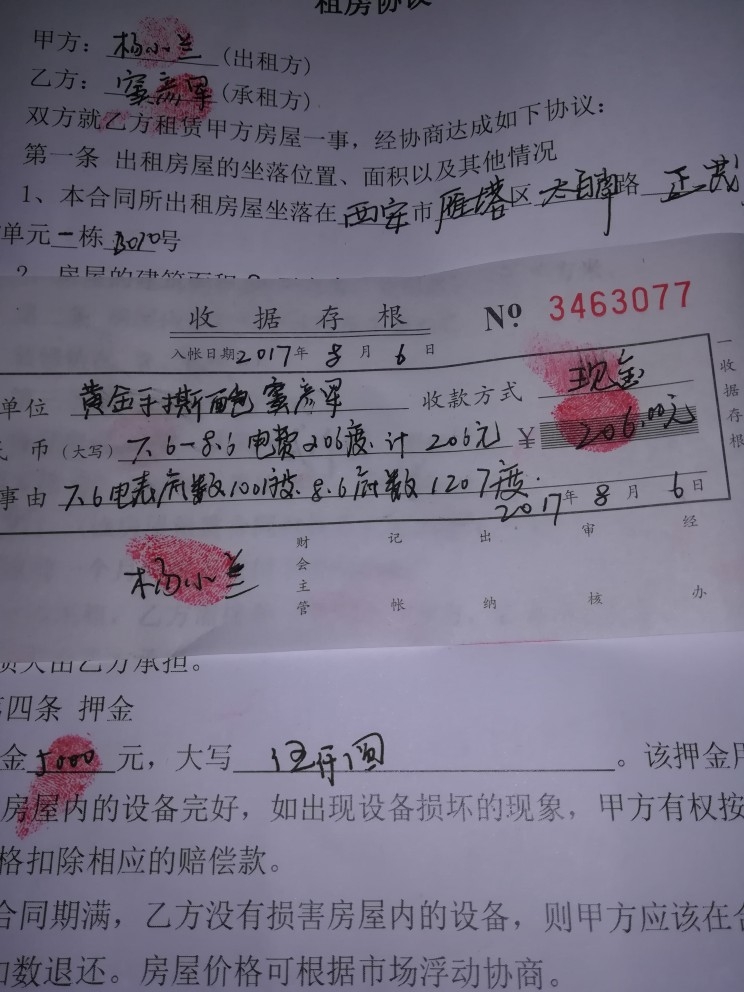 租房协议
甲方：杨小兰（出租方）
乙方：蜜彦军（承租方）
双方就乙方租赁甲方房屋一事，经协商达成如下协议：
第一条 出租房屋的坐落位置、面积以及其他情况
1、本合同所出租房屋坐落在西安市雁塔区太白南路正茂
单元一栋 号
收据存根 Nº 3463077
入帐日期2017年8月6日
单位 黄金手撕面包蜜彦军 收款方式 现金
币（大写）7.6-8.6电费206度.计206元 ¥ 206.00元
事由 7.6电表底数1001度.8.6底数1207度.
2017年8月6日
收据存根
杨小兰 财会主管 记帐 出纳 审核 经办
损失由乙方承担。
第四条 押金
金5000元，大写伍仟圆。该押金用
房屋内的设备完好，如出现设备损坏的现象，甲方有权按
格扣除相应的赔偿款。
合同期满，乙方没有损害房屋内的设备，则甲方应该在合
如数退还。房屋价格可根据市场浮动协商。